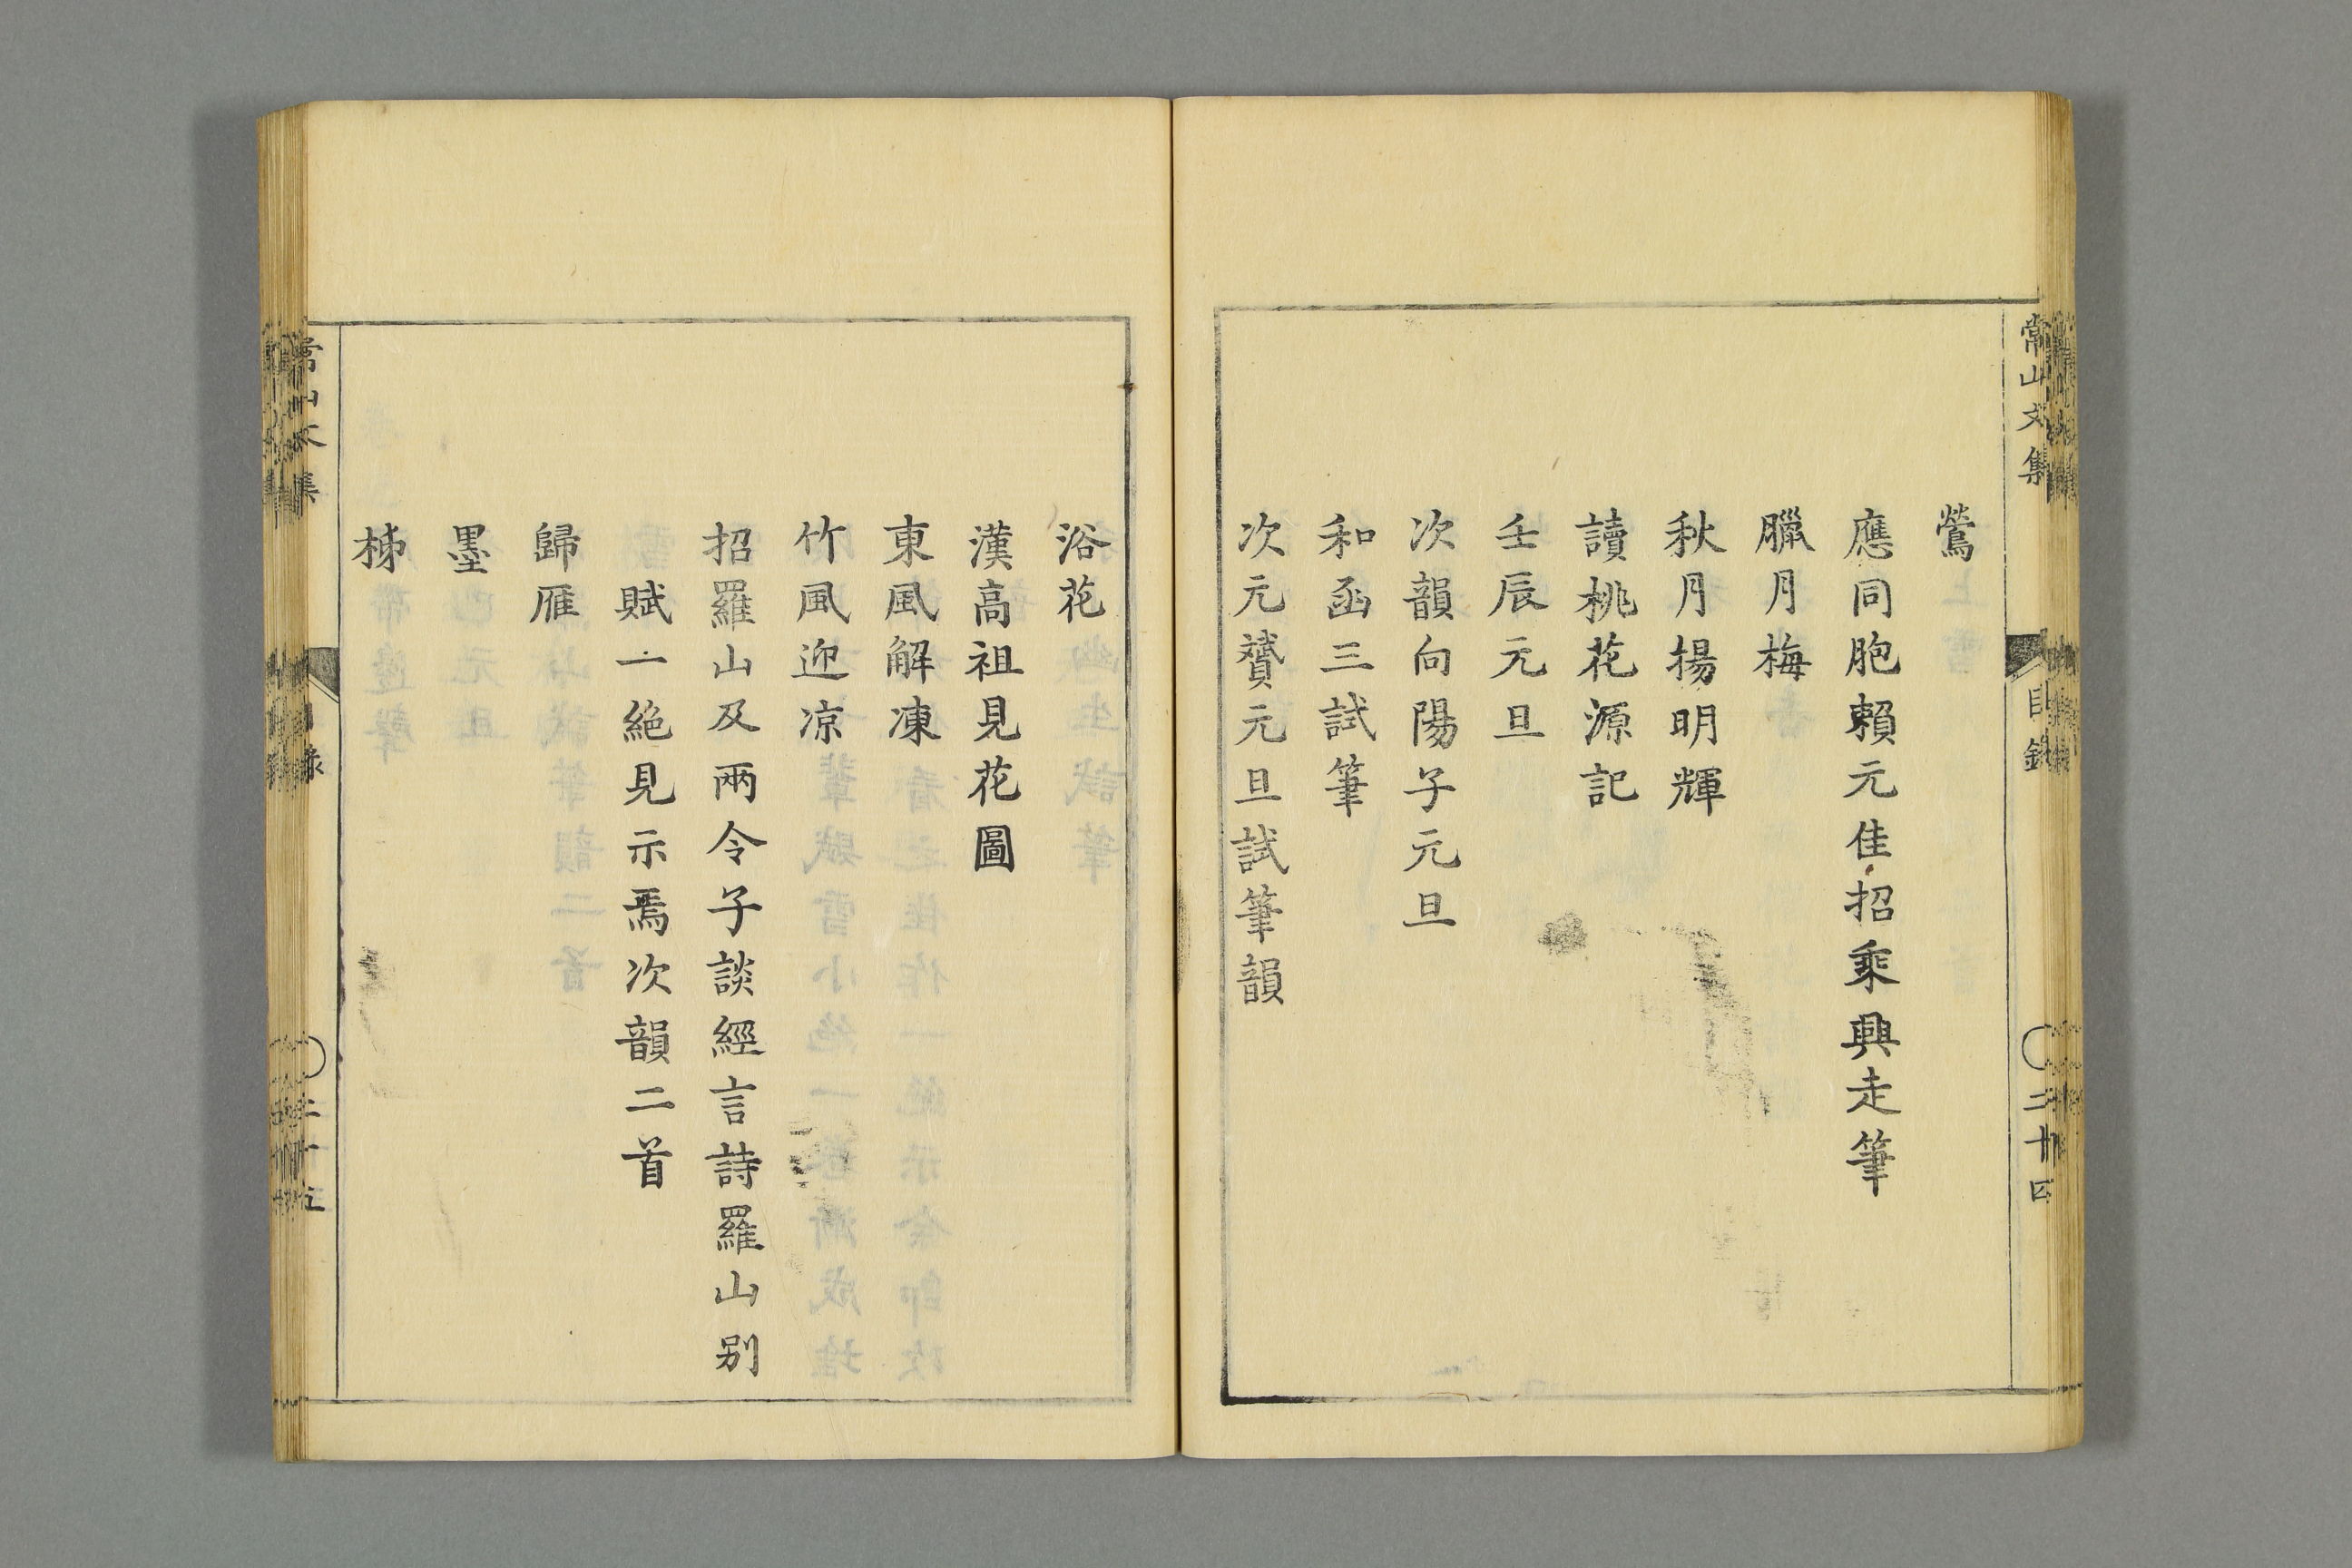 常山文集
目録
二十四
鶯
應同胞賴元佳招乘興走筆
臘月梅
秋月揚明輝
讀桃花源記
壬辰元旦
次韻向陽子元旦
和函三試筆
次元贇元旦試筆韻
浴花
漢高祖見花圖
東風解凍
竹風迎凉
招羅山及兩令子談經言詩羅山别
賦一絶見示焉次韻二首
歸雁
墨
梯
常山文集
目録
二十五